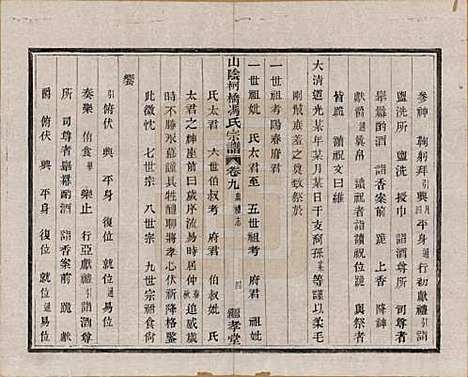 參神 鞠躬拜 興 平身 通 行初獻禮 引 詣
盥洗所 盥洗 授巾 詣酒尊所 司尊者
舉冪酌酒 詣香案前 跪 上香 降神
獻爵 詣讀祝者 讀祝位 與祭者
皆跪 讀祝文曰維
大清道光某年某月某日干支裔孫某等謹以柔毛
剛鬣庶羞之奠致祭於
一世祖考陽春府君
一世祖妣 氏太君至 五世祖考 府君 祖妣
氏太君 六世伯叔考 府君 妣 氏
太君之神座前曰時居仲 追感歲
時不勝永慕謹具牲醴聊將孝心伏祈降格鑒
此微忱 七世宗 八世宗 九世宗祖食尚
饗
引 俯伏 興 平身 復位 就位 通 易位
奏樂 侑食 樂止 行亞獻禮 引 詣酒尊
所 司尊者舉冪酌酒 詣香案前 跪 獻
爵 俯伏 興 平身 復位 就位 通 易位
山陰柯橋馮氏宗譜 卷九 四 繼孝堂